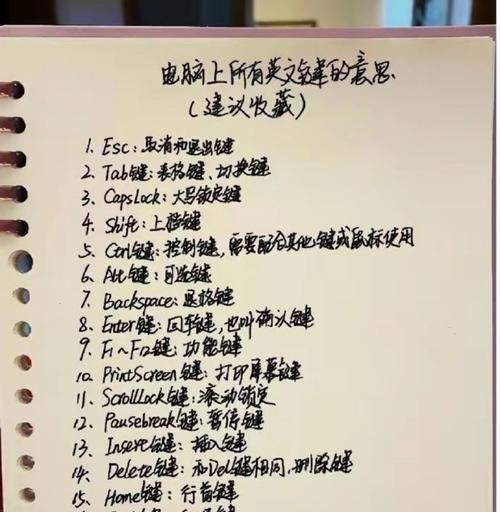 电脑上所有英文键的意思
(建议收藏)
1. Esc：取消和退出键
2. Tab键：表格键、切换键
3. CapsLock：大写锁定键
4. Shift：上档键
5. Ctrl键：控制键，需要配合其他键或鼠标使用
6. Alt键：可选键
7. Backspace：退格键
8. Enter键：回车键，也叫确认键
9. F1～F12键：功能键
10. PrintScreen键：打印屏幕键
11. ScrollLock键：滚动锁定
12. Pausebreak键：暂停键
13. Insert键：插入键
14. Delete键：和Del键相同，删除键
15. Home键：行首键